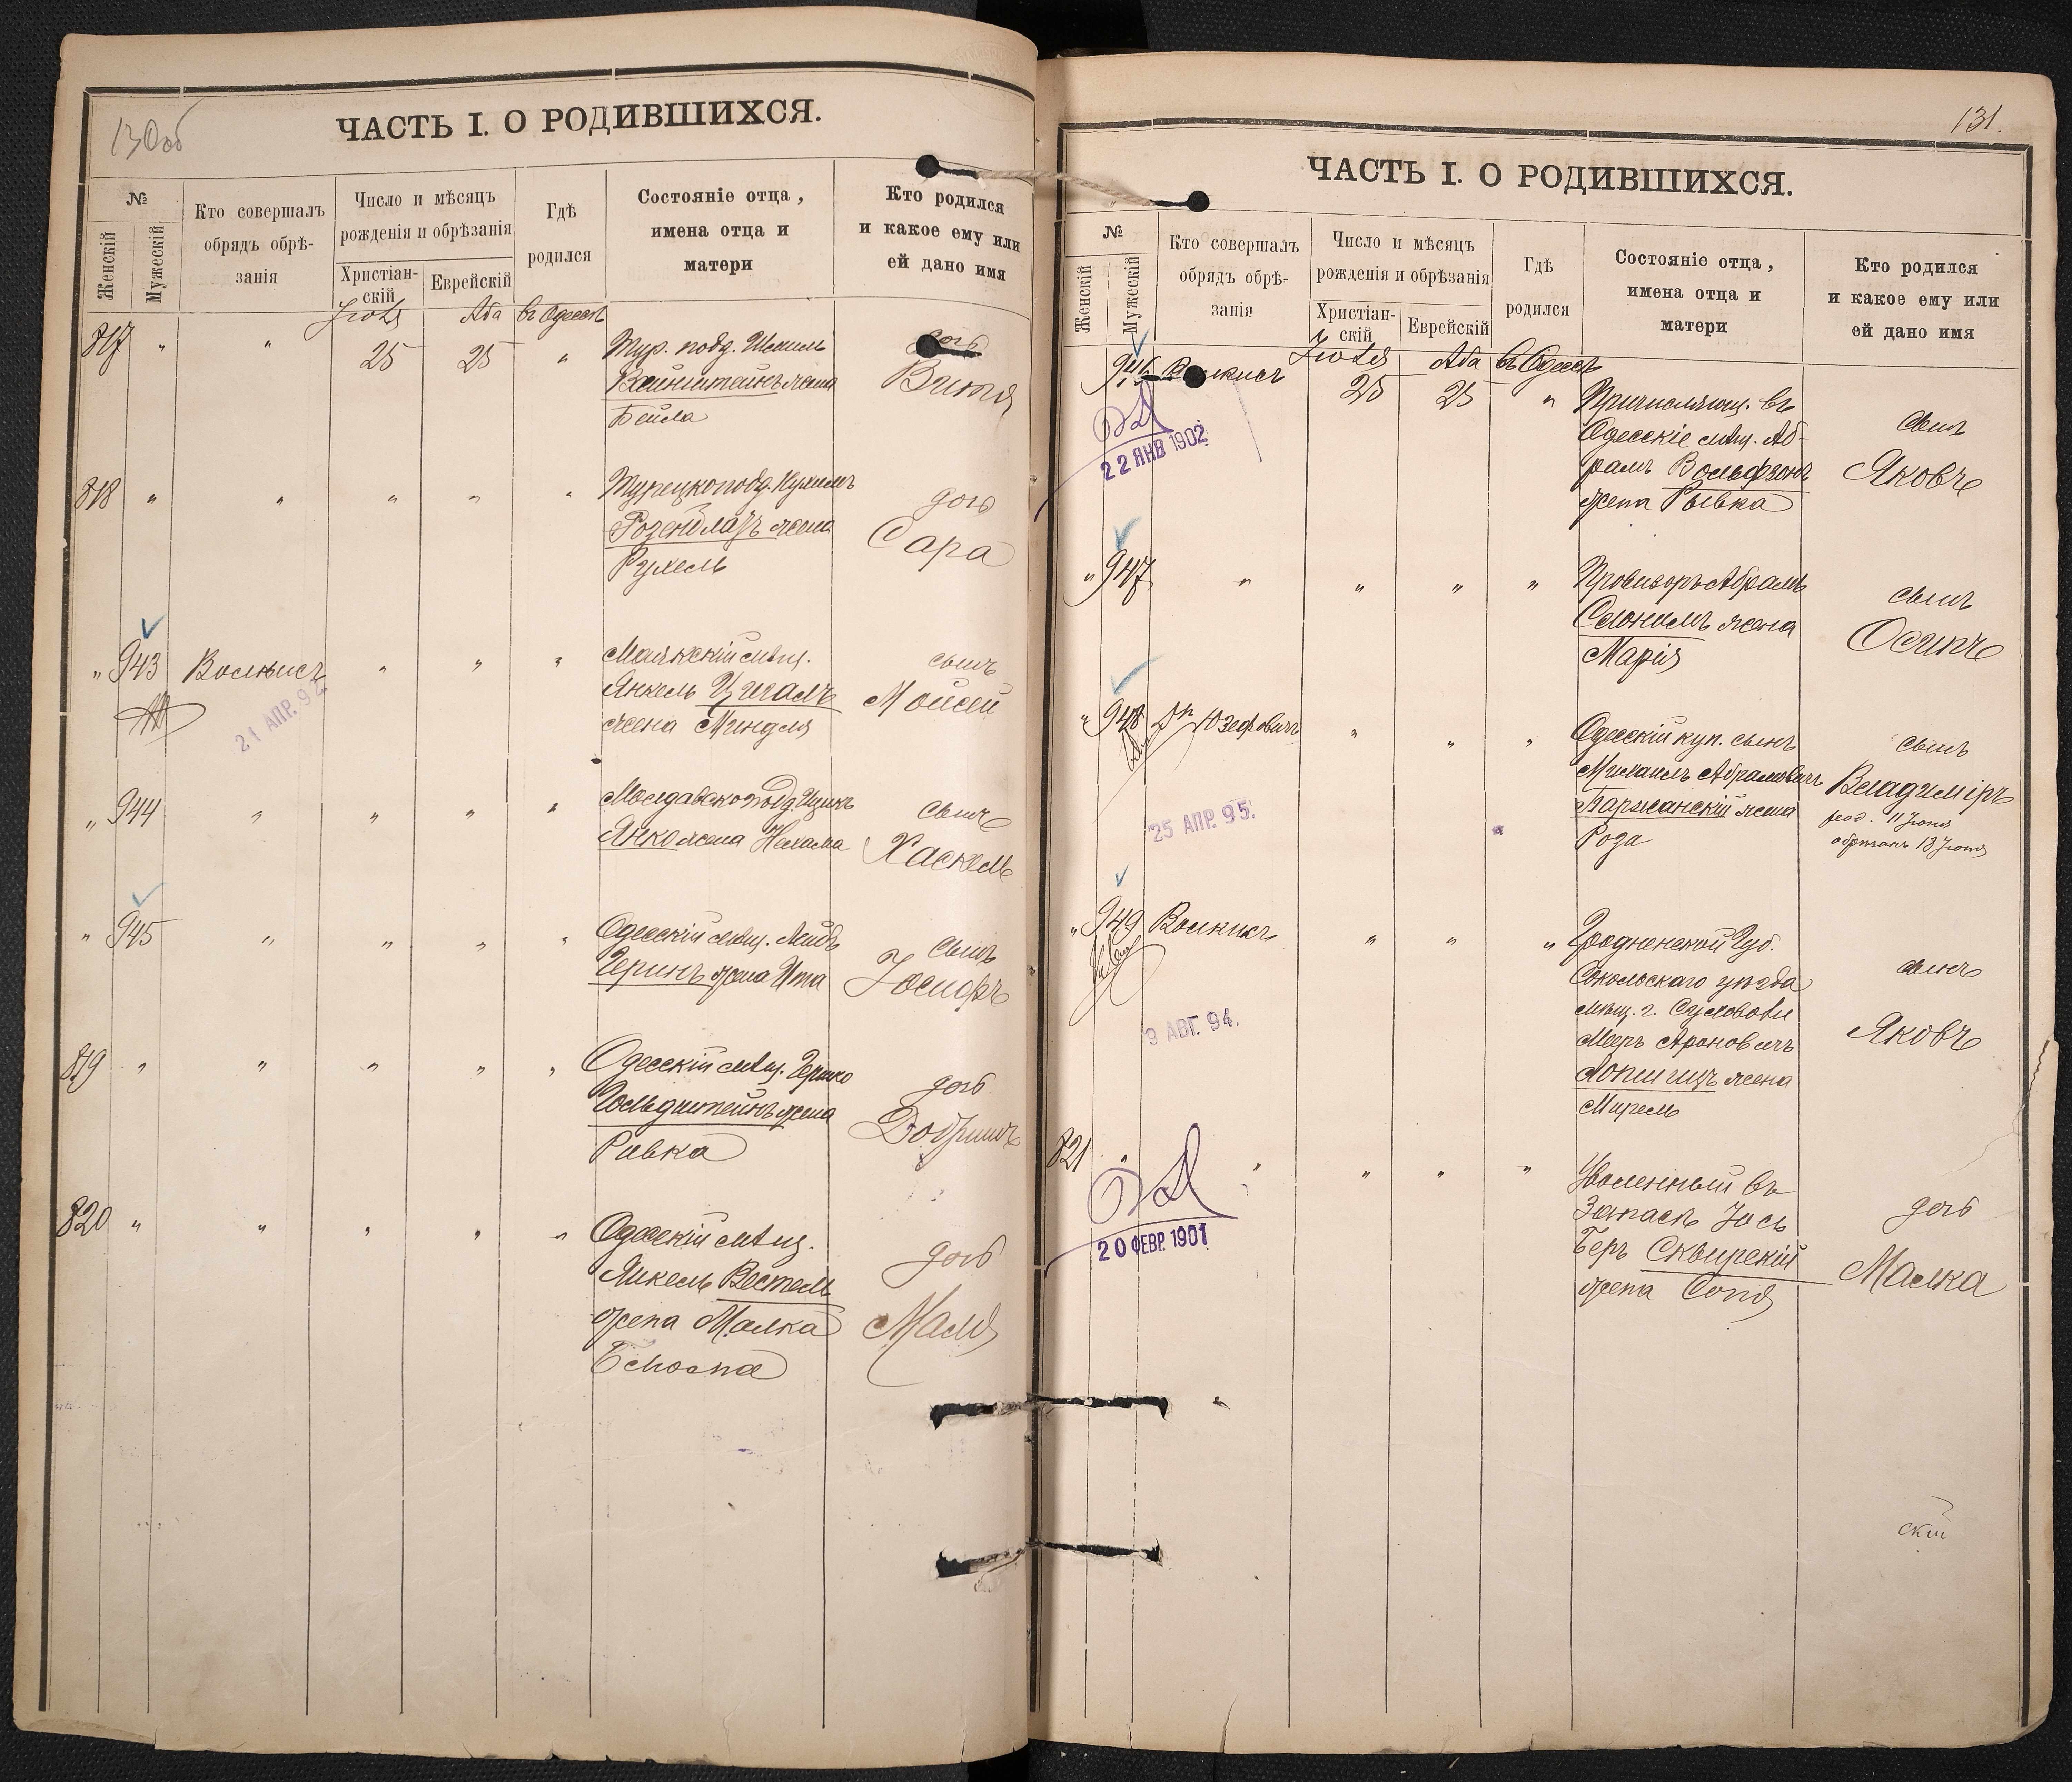 130об
ЧАСТЬ I. О РОДИВШИХСЯ.
№
Женскій
Мужескій
Кто совершалъ
обрядъ обрѣ-
занія
Число и мѣсяцъ
рожденія и обрѣзанія
Христіан-
скій
Еврейскій
Гдѣ
родился
Состояніе отца,
имена отца и
матери
Кто родился
и какое ему или
ей дано имя
Іюля Аба въ Одессѣ
817 " " 25 25 " Тур. подд. дочь
Вайнштейнъ жена
Бейла
818 " " " " " Турецкоподд.
Розенблатъ жена
Рухель
дочь
Сара
" 943 Волкисъ " " "
21 АПР. 92
мѣщ.
Янкель Цигалъ
жена Миндля
сынъ
Мойсей
" 944 " " " " Молдавскоподд. Ицикъ
Янко жена Нехама
сынъ
Хаскель
" 945 " " " " Одесскій мѣщ. Лейбъ
жена Ита
сынъ
Іосифъ
819 " " " " " Одесскій мѣщ. Гершко
Гольдштейнъ жена
Ривка
дочь
820 " " " " " Одесскій мѣщ.
Янкель Вестель
жена Малка
дочь
Маля
131.
ЧАСТЬ I. О РОДИВШИХСЯ.
№
Женскій
Мужескій
Кто совершалъ
обрядъ обрѣ-
занія
Число и мѣсяцъ
рожденія и обрѣзанія
Христіан-
скій
Еврейскій
Гдѣ
родился
Состояніе отца,
имена отца и
матери
Кто родился
и какое ему или
ей дано имя
Іюля Аба въ Одессѣ
946 25 25 "
22 ЯНВ 1902
Причисляющ. въ
Одесскіе мѣщ. Аб-
рамъ Вольфзонъ
жена Рывка
сынъ
Яковъ
" 947 " " " " Провизоръ Абрамъ
Слонимъ жена
Марія
сынъ
Осипъ
" 948 Др Юзефовичъ " " "
25 АПР. 95.
Одесскій куп. сынъ
Михаилъ Абрамовичъ
жена
Роза
сынъ
Владиміръ
род. 11 Іюня
обрѣзанъ 18 Іюня
" 949 Волкисъ " " "
9 АВГ. 94.
Гродненской Губ.
Сокольскаго уѣзда
мѣщ. г. Суховоли
Мееръ Ароновичъ
жена
Мирель
сынъ
Яковъ
821 " " " " "
20 ФЕВР. 1901
Уволенный въ
Запасъ Іось
Беръ Сквирскій
жена Соня
дочь
Малка
скій